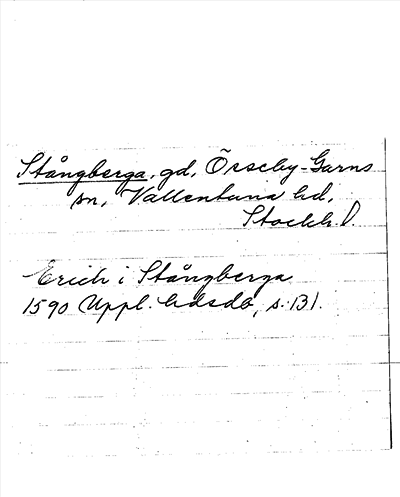 Stångberga, gd, Össeby-Garns
sn, Vallentuna hd,
Stockh. l.
Erich i Stångberga
1590 Uppl. hdsdb, s. 131.